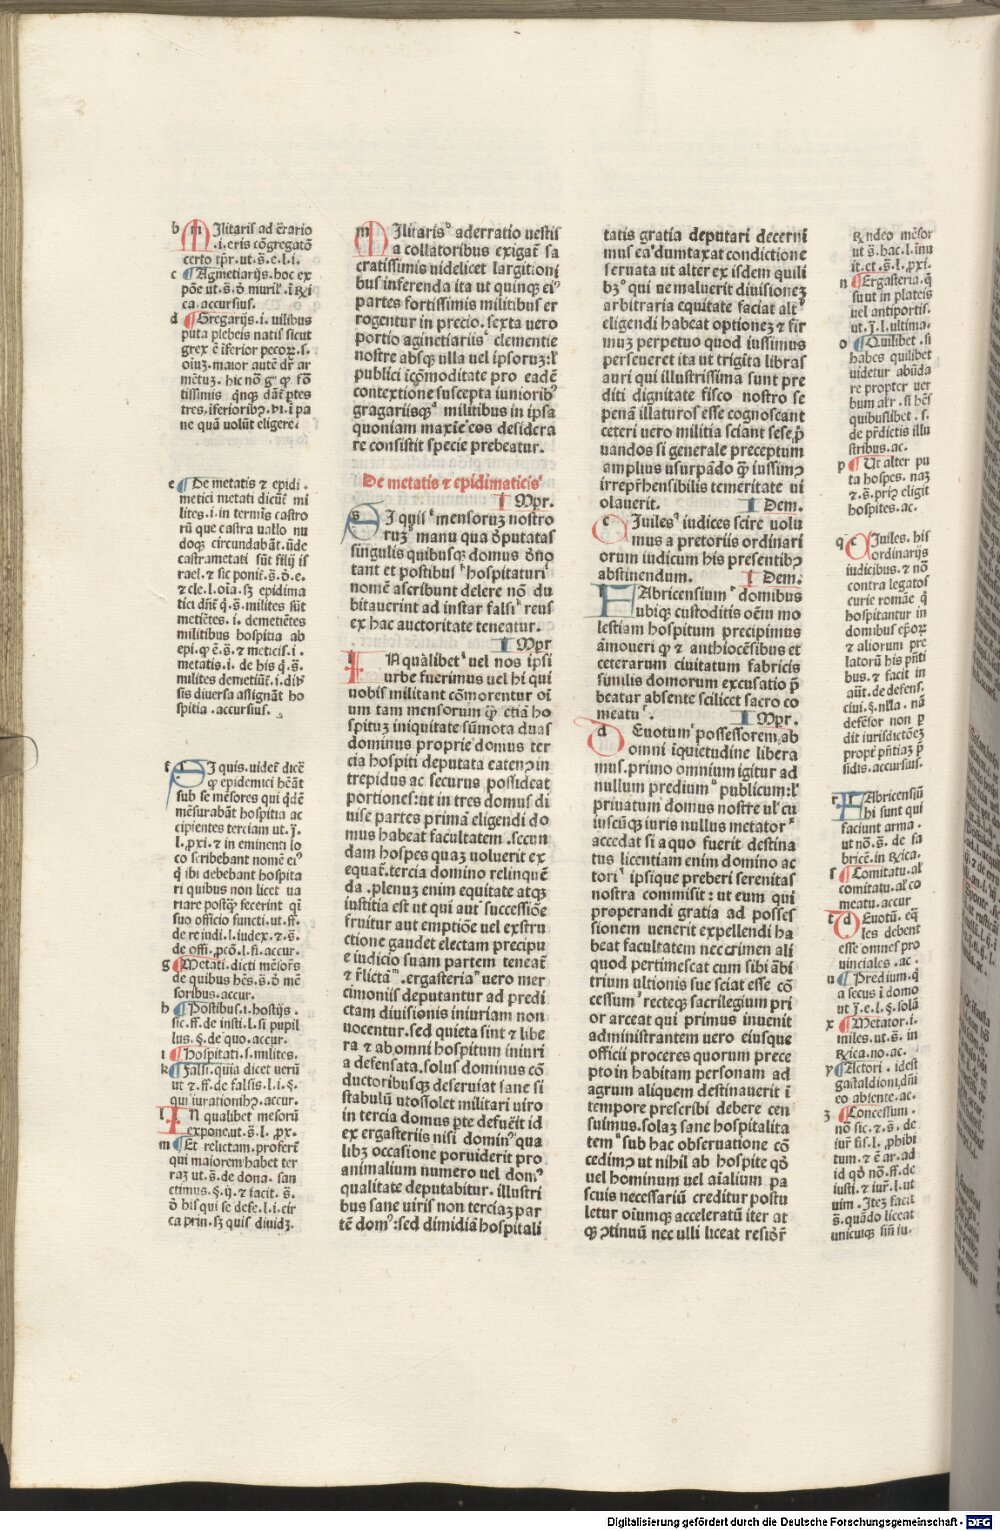 b m Ilitaris ad ērario
.i. eris cōgregatō
certo tpr̄. ut. s̄. e. l. i.
c ¶ Agmetiarijs. hoc ex
pōe ut. s̄. ꝺ̄ muril̕. i Rͣi
ca. accursius.
d ¶ Gregarijs. i. uilibus
puta plebeis natis sicut
grex ē īferior pecorꝝ. s.
oīuꝫ. maior autē dr̄ ar
mētuꝫ. hic nō gͦ ꝙ fō
tissimis q̄nqꝫ dāt p̄tes
tres. īferioribꝫ. vi. i pa
ne quā uolūt eligere.
e ¶ De metatis ⁊ epidi.
metici metati dicūt mi
lites. i. in termis castro
rū que castra uallo nu
doqꝫ circundabāt. ūde
castrametati sūt filij is
rael. ⁊ sic ponit. s̄. ꝺ̄. e.
⁊ cle. l. oīa. sꝫ epidima
tici dn̄t q̄. s̄. milites sūt
metiētes. i. demetiētes
militibus hospitia ab
epi. ꝙ ē. s̄. ⁊ meticis. i.
metatis. i. de his q̄. s̄.
milites demetiūt. i. diꝟ
sis diuersa assignāt ho
spitia. accursius.
f s I quis. uidet̄ dicē
ꝙ epidemici hēāt
sub se mēsores qui q̄dē
mēsurabāt hospitia ac
cipientes terciam ut. j̄.
l. ꝓxi. ⁊ in eminenti lo
co scribebant nomē ei᷒
q̄ ibi debebant hospita
ri quibus non licet ua
riare postq̄ꝫ fecerint qī
suo officio functi. ut. ff.
de re iudi. l. iudex. ⁊. s̄.
de offi. ꝓcō. l. fi. accur.
g ¶ Metati. dicti mēsor̄s
de quibus hēs. s̄. ꝺ̄ mē
soribus. accur.
h ¶ Postibus. i. hostijs.
sic. ff. de insti. l. si pupil
lus. §. de quo. accur.
i ¶ Hospitati. s. milites.
k ¶ Falsi. quia dicet uerū
ut ⁊. ff. de falsis. l. i. §.
qui iurationibꝫ. accur.
l I N qualibet mesorū
expone. ut. s̄. l. ꝓx.
m ¶ Et relictam. profert̄
qui maiorem habet ter
raꝫ ut. s̄. de dona. san
ctimus. §. ij. ⁊ facit. s̄.
ꝺ̄ his qui se defe. l. i. cir
ca prin. sꝫ quis diuidꝫ.
m Ilitaris aderratio uestis
a collatoribus exigat̄ sa
cratissimis uidelicet largitioni
bus inferenda ita ut quinqꝫ ei᷒
partes fortissimis militibus er
rogentur in precio. sexta uero
portio aginetiariis clementie
nostre absqꝫ ulla uel ipsoruꝫ: l̕
publici icōmoditate pro eadē
contextione suscepta iuniorib᷒
gragariisqꝫ militibus in ipsa
quoniam maxīe eos desidera
re consistit specie prebeatur.
De metatis ⁊ epidimaticis
I Mpr.
s I quis mensoruꝫ nostro
ruꝫ manu qua ꝺ̄putatas
singulis quibusqꝫ domus ꝺ̄no
tant et postibus hospitaturi
nomē ascribunt delere nō du
bitauerint ad instar falsi reus
ex hac auctoritate teneatur.
I Mpr
I N qualibet uel nos ipsi
urbe fuerimus uel hi qui
uobis militant cōmorentur oī
um tam mensorum q̄ꝫ etiā ho
spituꝫ iniquitate sūmota duas
dominus proprie domus ter
cia hospiti deputata eatenꝰ in
trepidus ac securus possideat
portiones: ut in tres domus di
uise partes primā eligendi do
mus habeat facultatem. secun
dam hospes quaꝫ uoluerit ex
equat̄. tercia domino relinquē
da. plenuꝫ enim equitate atqꝫ
iustitia est ut qui aut successiōe
fruitur aut emptiōe uel exstru
ctione gaudet electam precipu
e iudicio suam partem teneat̄
⁊ r̄lictā. ergasteria uero mer
cimoniis deputantur ad predi
ctam diuisionis iniuriam non
uocentur. sed quieta sint ⁊ libe
ra ⁊ ab omni hospitum iniuri
a defensata. solus dominus cō
ductoribusqꝫ deseruiat sane si
stabulū ut os solet militari uiro
in tercia domus pte defuēit id
ex ergasteriis nisi domin᷒ qua
libꝫ occasione poruiderit pro
animalium numero uel dom᷒
qualitate deputabitur. illustri
bus sane uiris non terciaꝫ par
tē dom᷒: sed dimidiā hospitali
tatis gratia deputari decerni
mus ea dumtaxat condictione
seruata ut alter ex isdem quili
bꝫ qui ne maluerit diuisioneꝫ
arbitraria equitate faciat alt̄
eligendi habeat optioneꝫ ⁊ fir
muꝫ perpetuo quod iussimus
perseueret ita ut trigīta libras
auri qui illustrissima sunt pre
diti dignitate fisco nostro se
penā illaturos esse cognoscant
ceteri uero militia sciant sese ꝓ
uandos si generale preceptum
amplius usurpādo q̄ꝫ iussimꝰ
irrepr̄hensibilis temeritate ui
olauerit. I Dem.
c Iuiles iudices scire uolu
mus a pretoriis ordinari
orum iudicum his presentibꝫ
abstinendum. I Dem.
F Abricensium domibus
ubiqꝫ custoditis oēm mo
lestiam hospitum precipimus
āmoueri ꝙ ⁊ anthiocēsibus et
ceterarum ciuitatum fabricis
similis domorum excusatio p̄
beatur absente scilicet sacro co
meatu. I Mpr.
d Euotum possessorem ab
omni īquietudine libera
mus. primo omnium igitur ad
nullum predium publicum: l̕
priuatum domus nostre ul̕ cu
iuscūqꝫ iuris nullus metator
accedat si a quo fuerit destina
tus licentiam enim domino ac
tori ipsique preberi serenitas
nostra commisit: ut eum qui
properandi gratia ad posses
sionem uenerit expellendi ha
beat facultatem nec crimen ali
quod pertimescat cum sibi ābi
trium ultionis sue sciat esse cō
cessum recteqꝫ sacrilegium pri
or arceat qui primus inuenit
administrantem uero eiusque
officii proceres quorum prece
pto in habitam personam ad
agrum aliquem destinauerit ī
tempore prescribi debere cen
suimus. solaꝫ sane hospitalita
tem sub hac obseruatione cō
cedimꝰ ut nihil ab hospite qō
uel hominum uel aīalium pa
scuis necessariū creditur postu
letur oīumqꝫ acceleratū iter at
qꝫ ꝯtinuū nec ulli liceat resiꝺ̄r̄
Rn̄deo mēsor
ut s̄. hac. l. īnu
it. et. s̄. l. ꝓxi.
n ¶ Ergasteria. q̄
sunt in plateis
uel antiportis.
ut. j̄. l. ultima.
o ¶ Quilibet. si
habes quilibet
uidetur abūda
re propter uer
bum alr̄. si hēs
quibuslibet. s.
de p̄dictis illu
stribus. ac.
p ¶ Ut alter pu
ta hospes. naꝫ
⁊. s̄. priꝰ eligit
hospites. ac.
q c Iuiles. his
ordinarijs
iudicibus. ⁊ nō
contra legatos
curie romāe q̄
hospitantur in
domibus ep̄oꝝ
⁊ aliorum pre
latorū his pn̄ti
bus. ⁊ facit in
aūt. de defens.
ciui. §. nlla. nā
defēsor non p
dit iurisdictōeꝫ
propt̄ pn̄tiaꝫ p̄
sidis. accursius.
r F Abricensiū
hi sunt qui
faciunt arma.
ut nō. s̄. de fa
bricē. in Rͣica.
s ¶ Comitatu. al̕
comitatu. al̕ co
meatu. accur
t d Euotū. eq̄
les debent
esse omnes pro
uinciales. ac.
u ¶ Predium. q̄
a secus ī domo
ut j̄. e. l. §. solā
x ¶ Metator. i.
miles. ut. s̄. in
Rͣica. no. ac.
y ¶ Actori. idest
gastaldioni, dn̄i
eo absente. ac.
z ¶ Concessum.
nō sic. ⁊. s̄. de
iur̄ fis. l. ꝓhibi
tum. ⁊ ē ar. ad
id qō nō. ff. de
iusti. ⁊ iur̄. l. ut
uim. Iteꝫ facit
s̄. quādo liceat
unicuiqꝫ sin̄ iu.
Digitalisierung gefördert durch die Deutsche Forschungsgemeinschaft - DFG